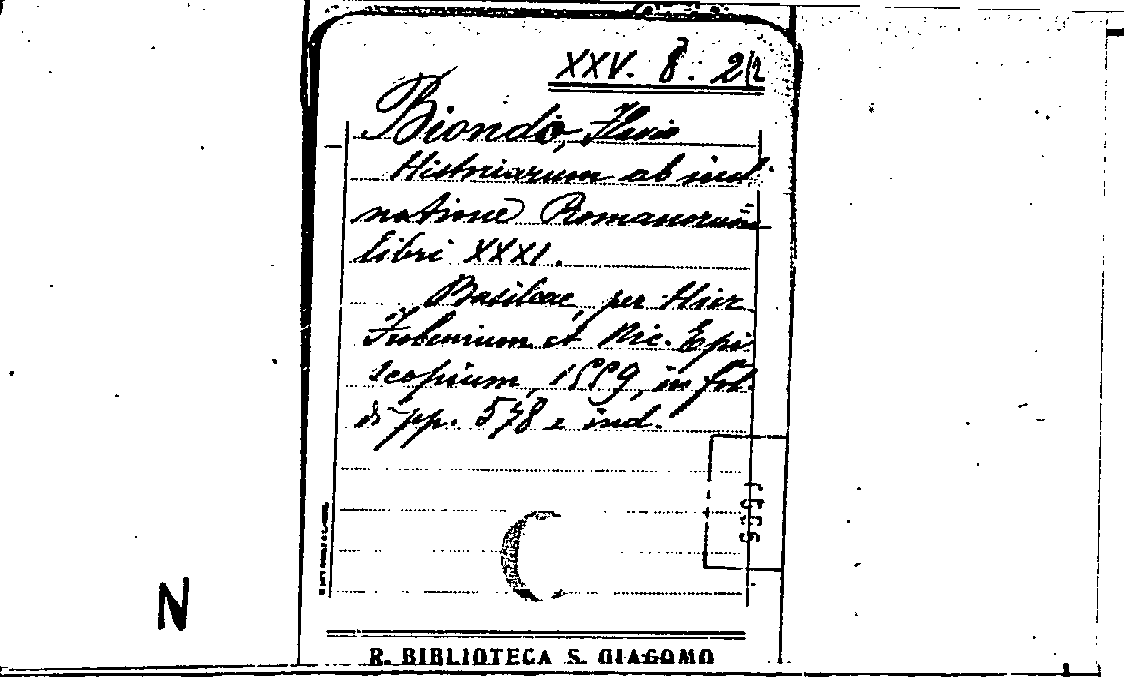 XXV. 8. 2
Biondo, Flavio
Historiarum ab incli
natione Romanorum
libri XXXI.
Basileae, per Hier.
Frobenium et Nic. Epi
scopium, 1559, in fol.
di pp. 578 e ind.
N
R. BIBLIOTECA S. GIACOMO